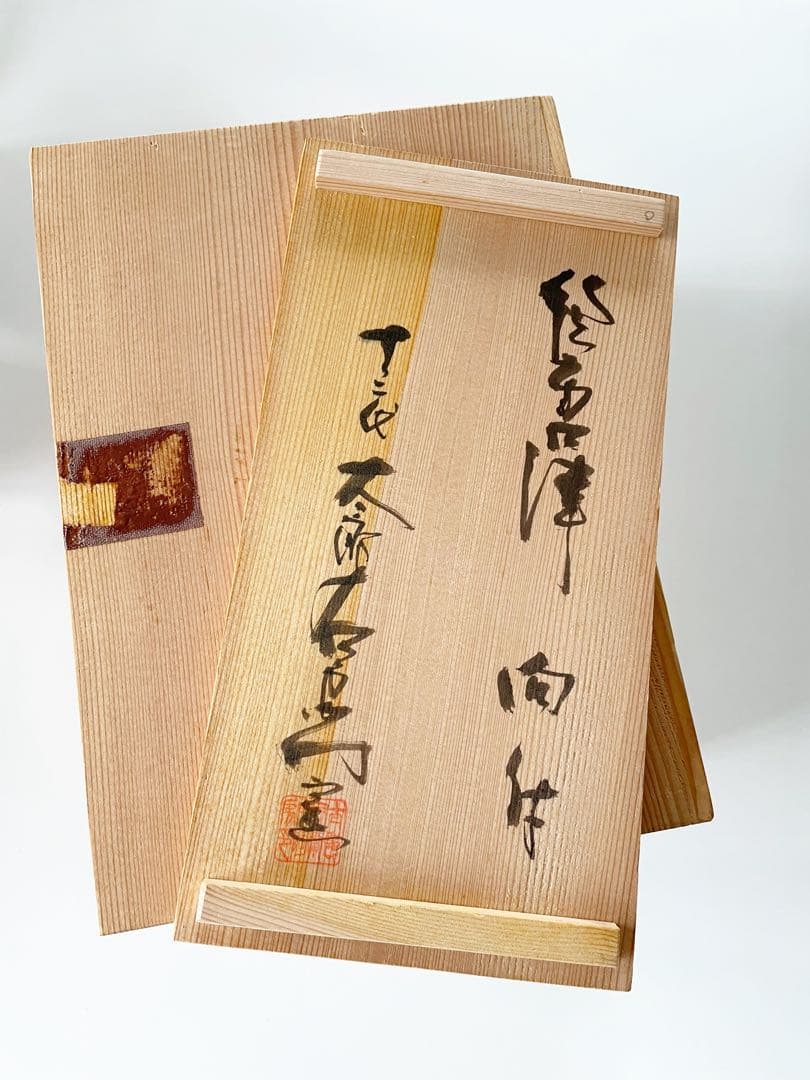 絵唐津 向付
十二代 太郎右衛門窯